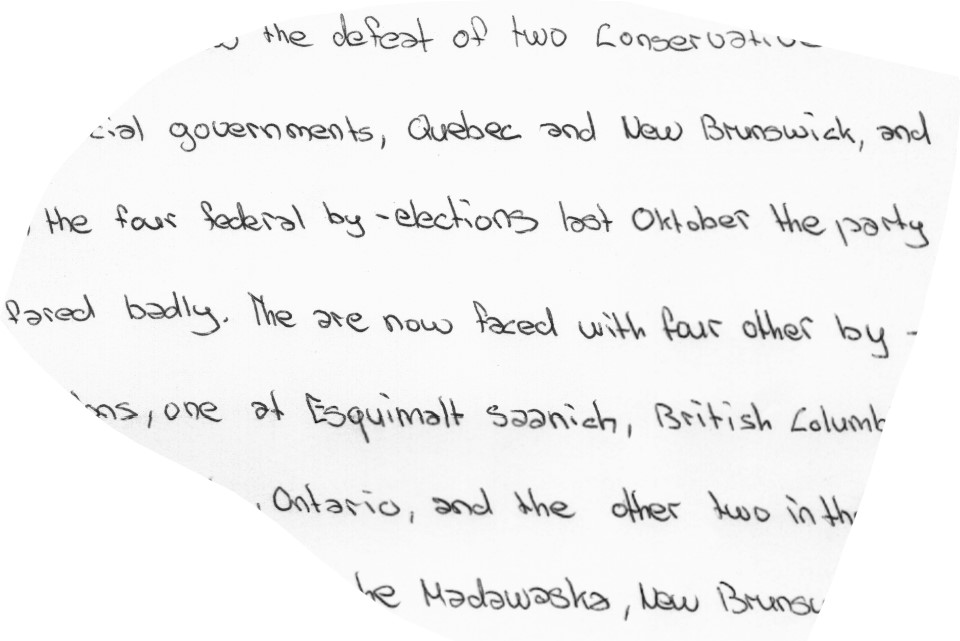 the defeat of two
governments, Quebec and New Brunswick, and
the four federal by-elections last Oktober the party
fared badly. The are now faced with four other by-
one at Esquimalt Saanich, British
Ontario, and the other two in
Madawaska, New